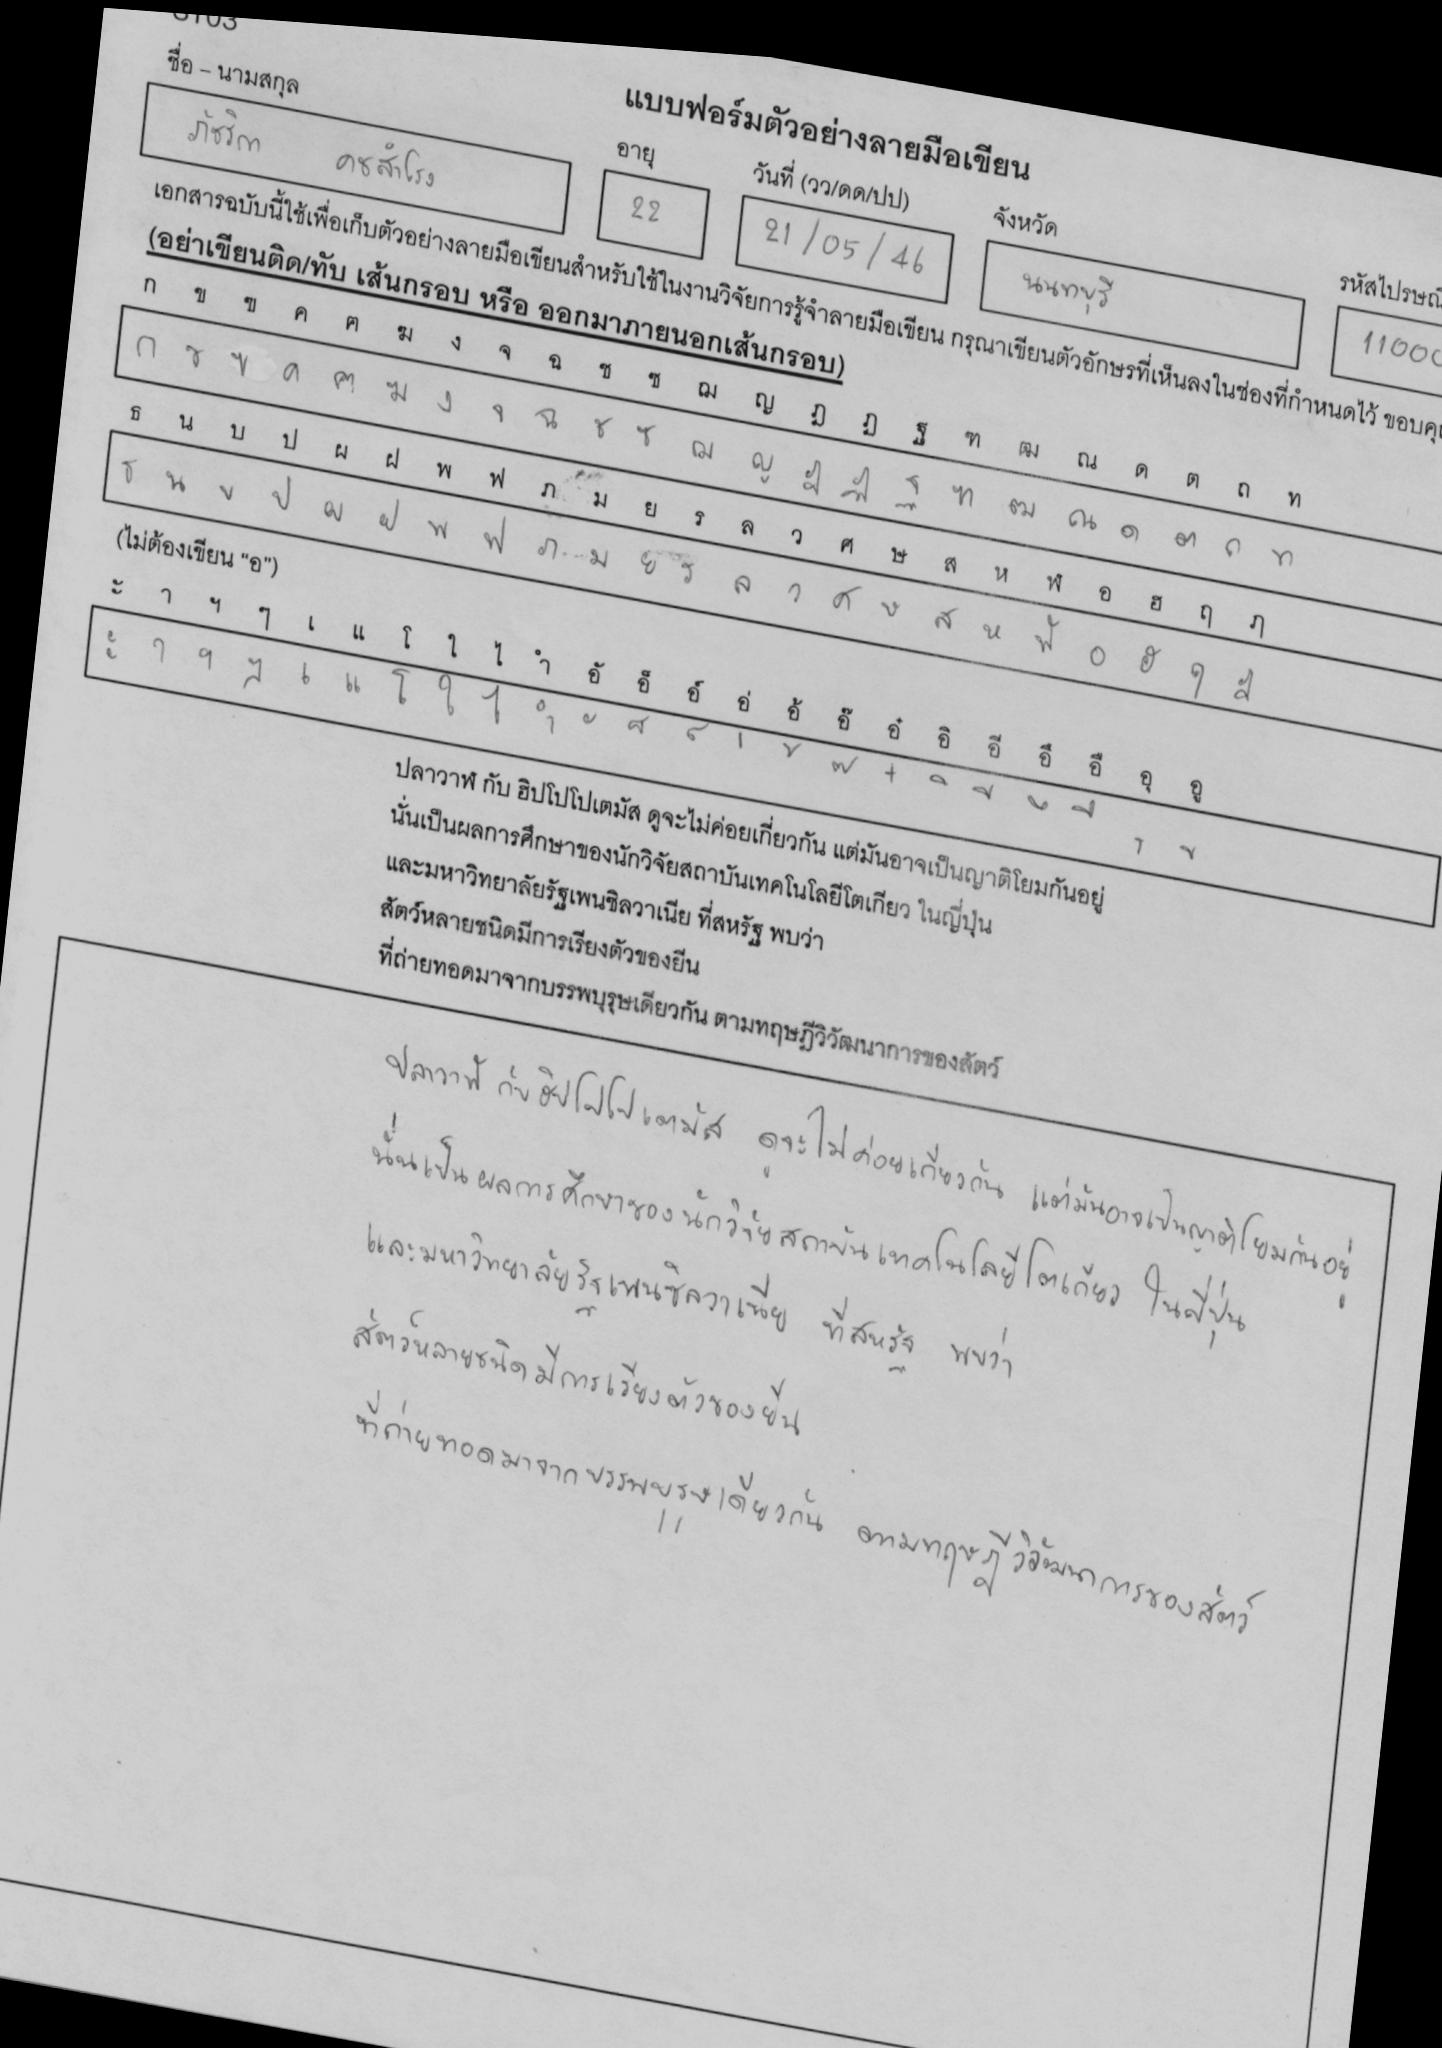 แบบฟอร์มตัวอย่างลายมือเขียน
ชื่อ – นามสกุล
อายุ
วันที่ (วว/ดด/ปป)
จังหวัด
รหัสไปรษณี
คชสำโรง
22
21/05/46
นนทบุรี
11000
เอกสารฉบับนี้ใช้เพื่อเก็บตัวอย่างลายมือเขียนสำหรับใช้ในงานวิจัยการรู้จำลายมือเขียน กรุณาเขียนตัวอักษรที่เห็นลงในช่องที่กำหนดไว้
(อย่าเขียนติด/ทับ เส้นกรอบ หรือ ออกมาภายนอกเส้นกรอบ)
ก ข ฃ ค ฅ ฆ ง จ ฉ ช ซ ฌ ญ ฎ ฏ ฐ ฑ ฒ ณ ด ต ถ ท
ก ข ฃ ค ฅ ฆ ง จ ฉ ช ซ ฌ ญ ฎ ฏ ฐ ฑ ฒ ณ ด ต ถ ท
ธ น บ ป ผ ฝ พ ฟ ภ ม ย ร ล ว ศ ษ ส ห ฬ อ ฮ ฤ ฦ
ธ น บ ป ผ ฝ พ ฟ ภ ม ย ร ล ว ศ ษ ส ห ฬ อ ฮ ฤ ฦ
(ไม่ต้องเขียน "อ")
ะ า ฯ ๆ เ แ โ ใ ไ ำ อั อ็ อ์ อ่ อ้ อ๊ อ๋ อิ อี อึ อื อุ อู
ะ า ฯ ๆ เ แ โ ใ ไ ำ ั ็ ์ ่ ้ ๊ ๋ ิ ี ึ ื ุ ู
ปลาวาฬ กับ ฮิปโปโปเตมัส ดูจะไม่ค่อยเกี่ยวกัน แต่มันอาจเป็นญาติโยมกันอยู่
นั่นเป็นผลการศึกษาของนักวิจัยสถาบันเทคโนโลยีโตเกียว ในญี่ปุ่น
และมหาวิทยาลัยรัฐเพนซิลวาเนีย ที่สหรัฐ พบว่า
สัตว์หลายชนิดมีการเรียงตัวของยีน
ที่ถ่ายทอดมาจากบรรพบุรุษเดียวกัน ตามทฤษฎีวิวัฒนาการของสัตว์
ปลาวาฬ กับ ฮิปโปโปเตมัส ดูจะไม่ค่อยเกี่ยวกัน แต่มันอาจเป็นญาติโยมกันอยู่
นั่นเป็นผลการศึกษาของนักวิจัยสถาบันเทคโนโลยีโตเกียว ในญี่ปุ่น
และมหาวิทยาลัยรัฐเพนซิลวาเนีย ที่สหรัฐ พบว่า
สัตว์หลายชนิดมีการเรียงตัวของยีน
ที่ถ่ายทอดมาจากบรรพบุรุษเดียวกัน ตามทฤษฎีวิวัฒนาการของสัตว์